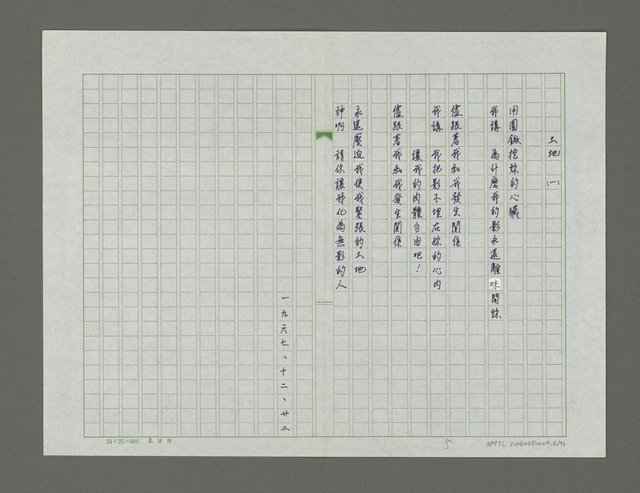 土地（一）
用圓鍬挖妳的心臟
我講　為什麼我的影永遠離味開妳
儘跟著我和我發生關係
我講　我把影子埋在妳的心內
讓我的肉體自由吧！
儘跟著我和我發生關係
永遠壓迫我使我緊張的土地
神啊　請你讓我化為無影的人
一九六七、十二、廿三
24×25=600
5
NMTL 20060250004.8/99